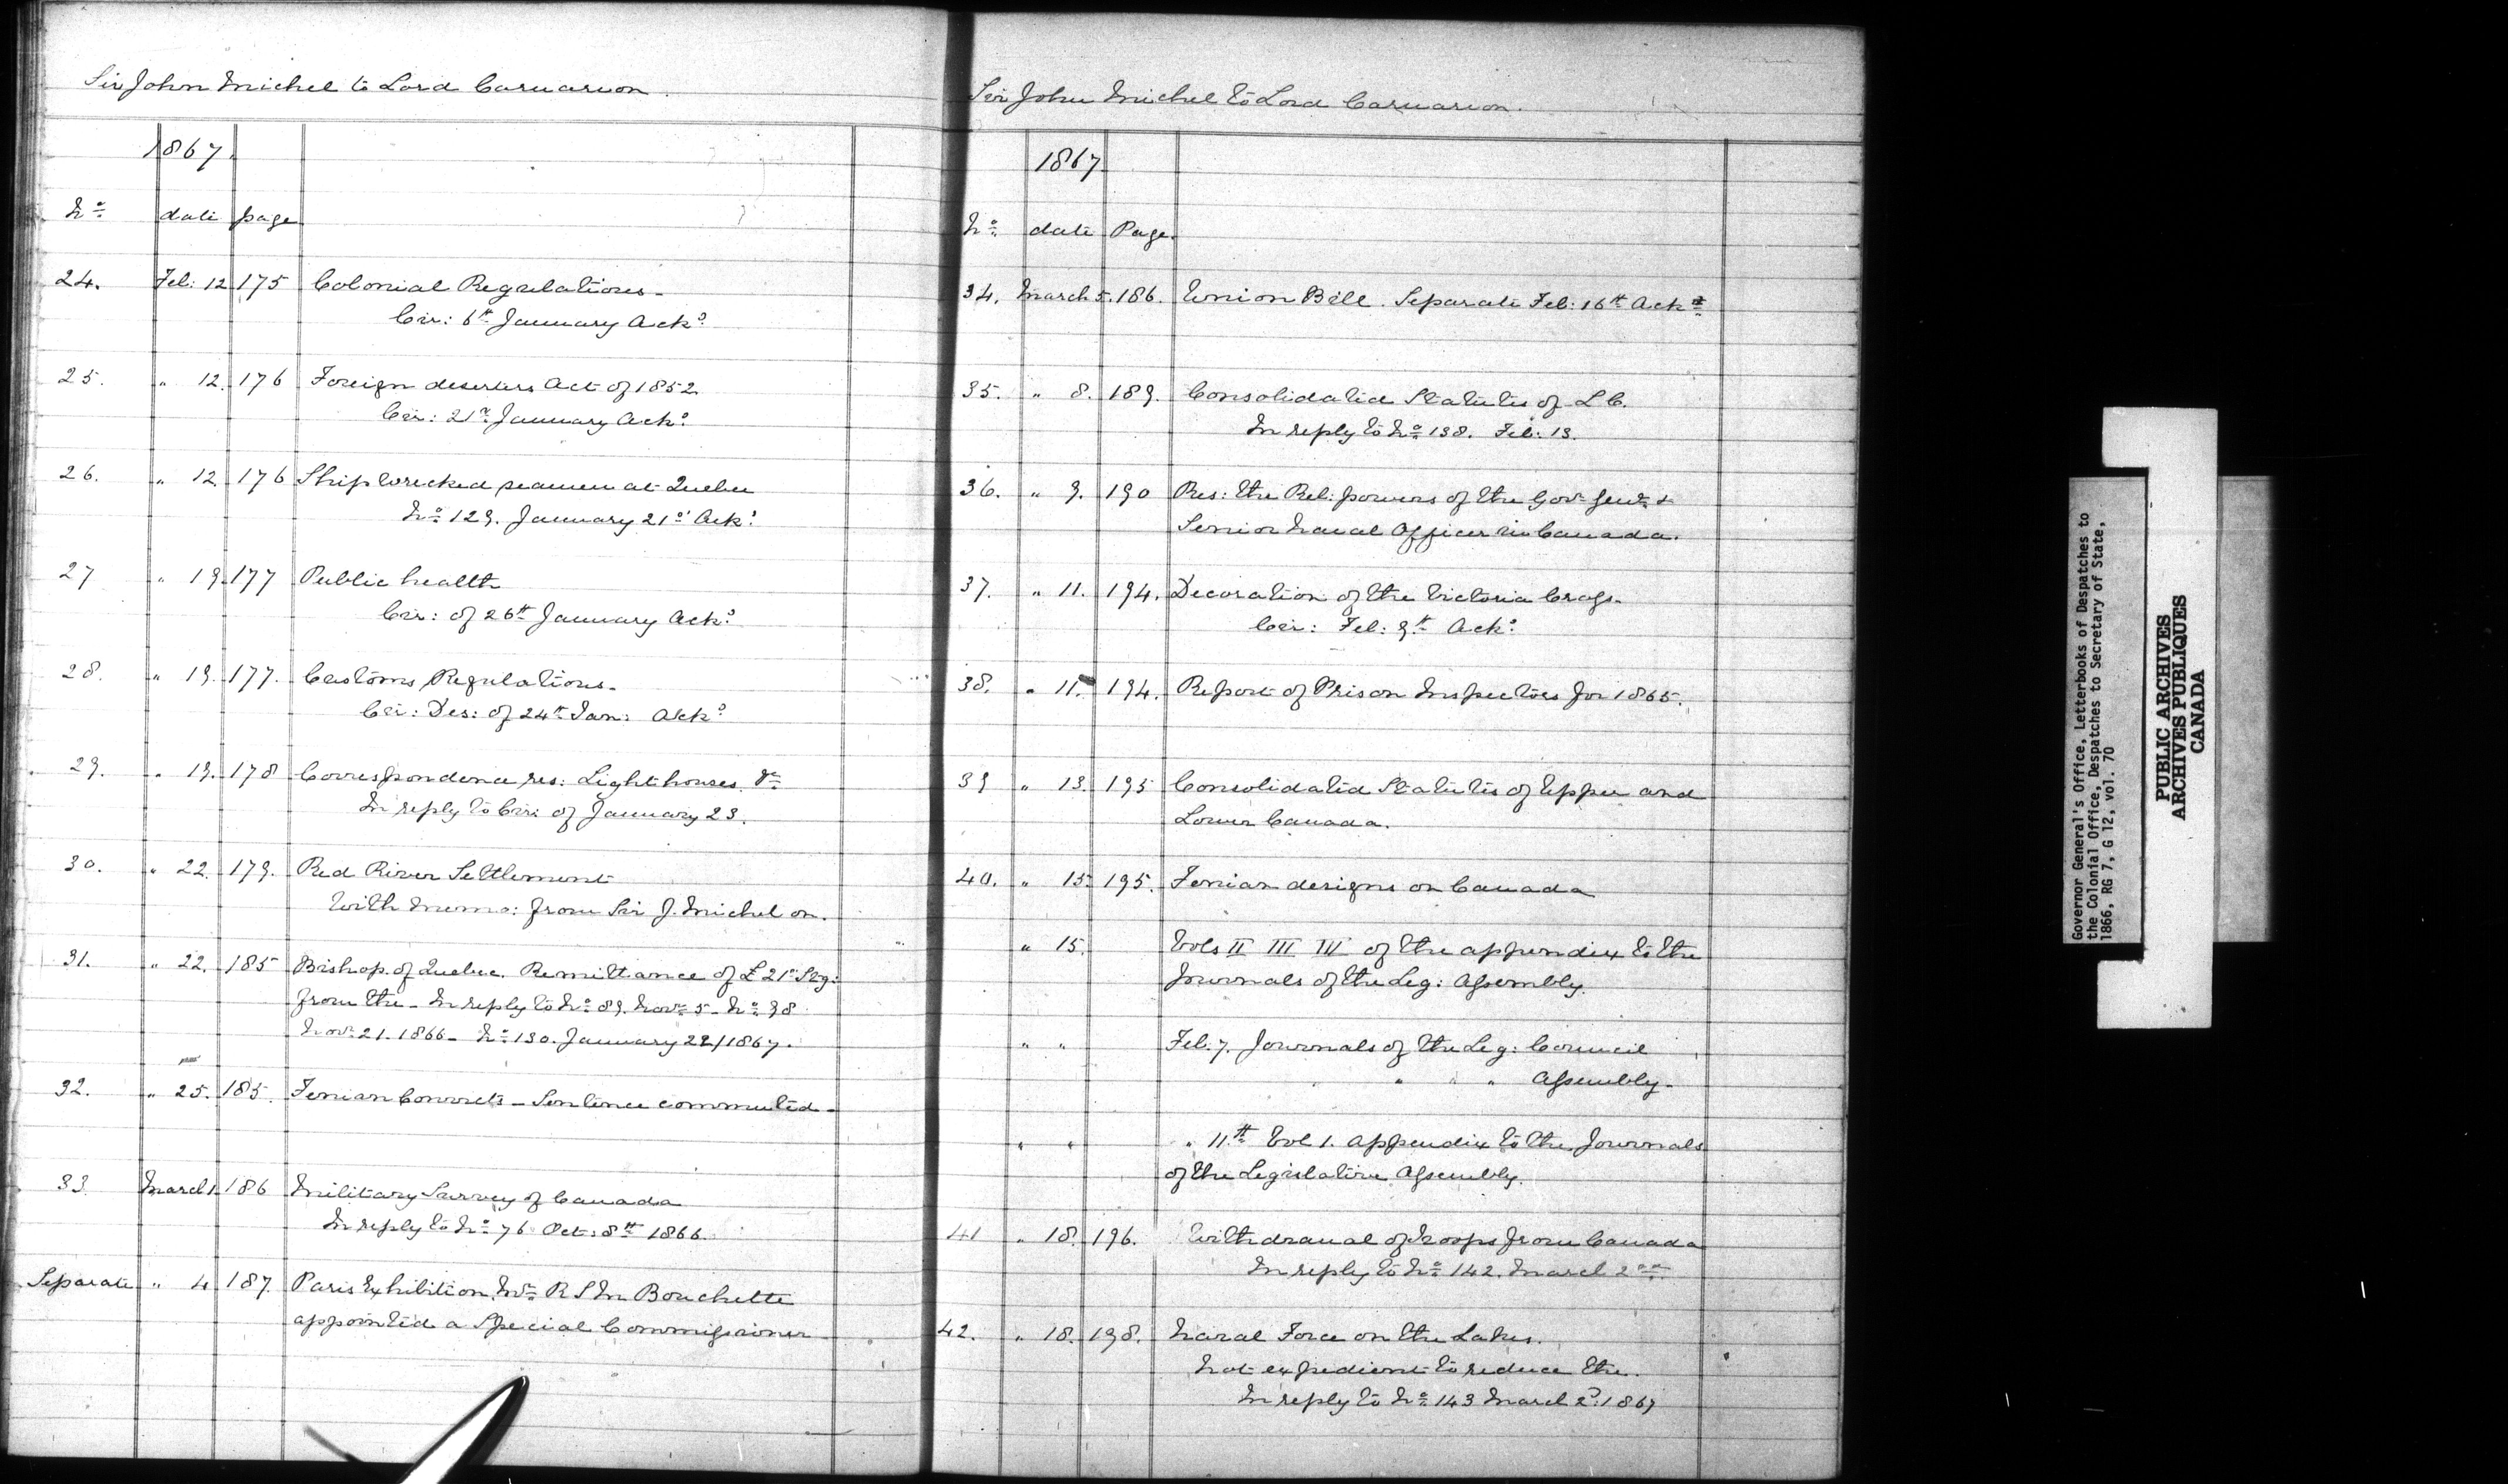 Sir John Michel to Lord Carnarvon.
1867.
No. date page
24. Feb: 12 175 Colonial Regulations.
Cir: 6th January Ackd.
25. " 12. 176 Foreign deserters Act of 1852.
Cir: 21st January Ackd.
26. " 12. 176 Shipwrecked seamen at Quebec
No. 129. January 21st Ackd.
27 " 19. 177 Public health
Cir: of 26th January Ackd.
28. " 19. 177. Customs Regulations.
Cir: Des: of 24th Jan: Ackd.
29. " 19. 178 Correspondence res: Lighthouses &c
In reply to Cir: of January 23.
30. " 22. 179. Red River Settlement
With Memo: from Sir J. Michel on.
31. " 22. 185 Bishop of Quebec. Remittance of £21 Stg:
from the - In reply to No. 89. Novr. 5 - No. 98
Novr. 21. 1866 - No. 130. January 22/1867.
32. " 25. 185. Fenian Convicts - Sentence commuted -
33. March 1. 186 Military Survey of Canada
In reply to No. 76 Oct: 8th 1866.
Separate " 4 187. Paris Exhibition. Mr. R S M Bouchette
appointed a Special Commissioner
Sir John Michel to Lord Carnarvon.
1867
No. date Page.
34. March 5. 186. Union Bill. Separate Feb: 16th Ackd.
35. " 8. 189. Consolidated Statutes of L C.
In reply to No. 138. Feb: 13.
36. " 9. 190 Res: the Rel: powers of the Govr Genl. &
Senior Naval Officer in Canada.
37. " 11. 194. Decoration of the Victoria Cross.
Cir: Feb: 9th Ackd.
38. " 11. 194. Report of Prison Inspectors for 1865.
39 " 13. 195 Consolidated Statutes of Upper and
Lower Canada.
40. " 15. 195. Fenian designs on Canada
" 15. Vols II III III of the appendix to the
Journals of the Leg: Assembly.
" " Feb: 7. Journals of the Leg: Council
" " " Assembly.
" " " 11th Vol 1. Appendix to the Journals
of the Legislative Assembly.
41 " 18. 196. Withdrawal of Troops from Canada
In reply to No. 142. March 2nd.
42. " 18. 198. Naval Force on the Lakes.
Not expedient to reduce the.
In reply to No. 143 March 2d. 1867
Governor General's Office, Letterbooks of Despatches to
the Colonial Office, Despatches to Secretary of State,
1866, RG 7, G 12, vol. 70
PUBLIC ARCHIVES
ARCHIVES PUBLIQUES
CANADA